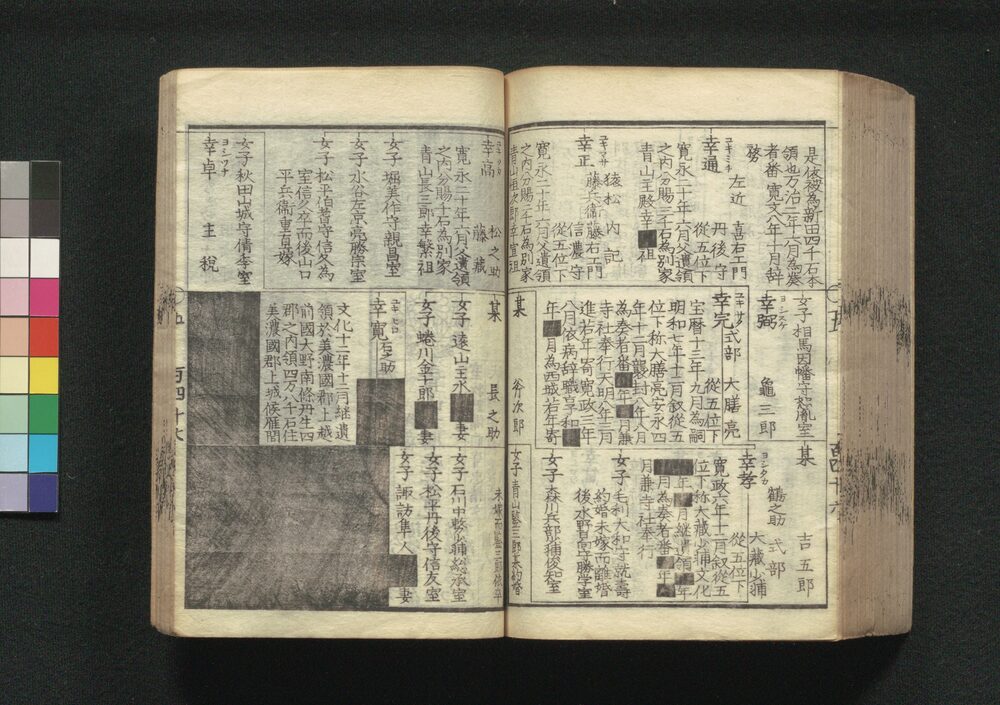 是依被為新田四千石本
領也万治二年六月為葵
者番寛文八年十月辞
務
幸通
左近
喜右エ門
丹後守
従五位下
寛永二十年六月父遺領
之内分賜二千石為別家
青山主殿幸■祖
幸正
猿松
内記
藤兵衛
藤右エ門
信濃守
従五位下
寛永二十年六月父遺領
之内分賜二千石為別家
女子相馬因幡守
室
幸弼
ヨシスケ
亀三郎
幸完
式部
大膳亮
従五位下
宝暦十三年九月為嗣
明和七年十二月叙従五
位下称大膳亮安永四
年十二月襲封八年月
為奏者番■年■月兼
寺社奉行天明八年三月
進若年寄寛政二年
八月依病辞職享和■
年■月為西城若年寄
某
谷次郎
某
鶴之助
吉五郎
式部
大蔵少輔
幸孝
ヨシタカ
従五位下
寛政六年十二月叙従五
位下称大蔵少輔文化
■年■月継遺領■年
■月為奏者番■年■
月兼寺社奉行
女子毛利大和守就壽
約婚未嫁而離婚
後水野日向守勝学室
女子森川兵部少輔俊知室
女子青山
幸高
松之助
藤蔵
寛永二十年六月父遺領
之内分賜千石為別家
青山長三郎幸繁祖
女子堀美作守親昌室
女子水谷左京亮勝宗室
女子松平伯耆守信久為
室信久卒而後山口
平兵衛重直嫁
女子秋田山城守倩季室
幸卓
主税
某
長之助
女子遠山主水■妻
女子蜷川金十郎■妻
幸寛
ユキヒロ
右之助
文化十二年十二月継遺
領於美濃國郡上越
前國大野南條丹生四
郡之内領四万八千石住
美濃國郡上城候雁間
女子石川中務少輔総承室
女子松平丹後守信友室
女子諏訪隼人■妻
五
百四十六